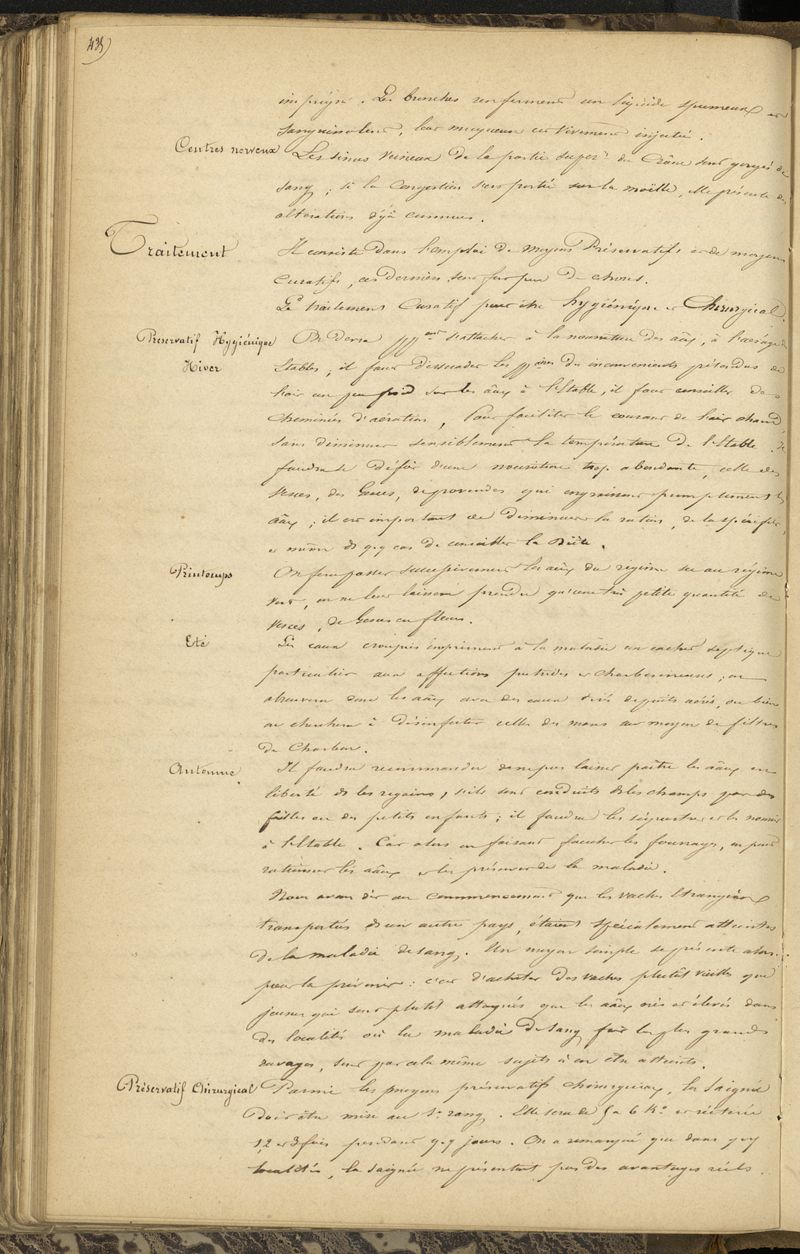 435)
Les bronches renferment un liquide spumeux et
sanguinolent, leur muqueuse est vivement injectée.
Centres nerveux Les sinus veineux de la partie super.re du Crâne sont gorgés de
sang ; si la Congestion s'est portée sur la moëlle, elle présente des
altérations déjà connues.
Traitement Il consiste dans l'emploi de moyens Préservatifs et de moyens
Curatifs, ces derniers sont fort peu de choses.
Le traitement Curatif peut être hygiénique et Chirurgical.
Préservatif Hygiénique On devra s'attacher à la nourriture des aux, à l'aérage des
Hiver Etables ; il faut dissuader les des inconvénients prétendus de
l'air un peu froid sur les aux à l'Etable, il faut conseiller des
cheminées d'aération, pour faciliter le courant de l'air chaud,
sans diminuer sensiblement la température de l'Etable. Il
faudra se défier d'une nourriture trop abondante, celle des
vesces, des Gesces, de provendes qui engraissent promptement les
aux ; il est important de diminuer la ration, de la spécifier,
et même ds q.q cas de conseiller la Diète.
Printemps On fera passer successivement les aux du régime sec au régime
vert, on ne leur laissera prendre qu'une très petite quantité de
vesces, de Gesces en fleurs.
Eté Les eaux croupies impriment à la maladie un cachet septique
particulier aux affections putrides et charbonneuses ; on
abreuvera donc les aux avec des eaux tirés de puits aérés, ou bien
on cherchera à désinfecter celle des mares au moyen de filtres
de Charbon.
Automne Il faudra recommander de ne pas laisser paître les aux en
liberté ds les regains, s'ils sont conduits ds les champs par des
filles ou des petits enfants ; il faudra les séquestrer et les nourrir
à l'Etable. Car alors en faisant faucher les fourrages, on peut
rationner les aux et les préserver de la maladie.
Nous avons dit au commencement que les vaches Etrangères
transportées d'un autre pays, étaient spécialement atteintes
de la maladie de sang. Un moyen simple se présente alors
pour la prévenir : c'est d'acheter des vaches plutôt vieilles que
jeunes qui sont plutôt attaqués que les aux nés et élevés dans
des localités où la maladie de sang fait les plus grands
ravages, sont par cela même sujets à en être atteints.
Préservatif Chirurgical Parmi les moyens préservatifs chirurgicaux, la saignée
doit être mise au 1er rang. Elle sera de 5 à 6 K.o et réitérée
1, 2 et 3 fois pendant q.q jours. On a remarqué que dans q.q
localités, la saignée ne présentait pas des avantages réels.